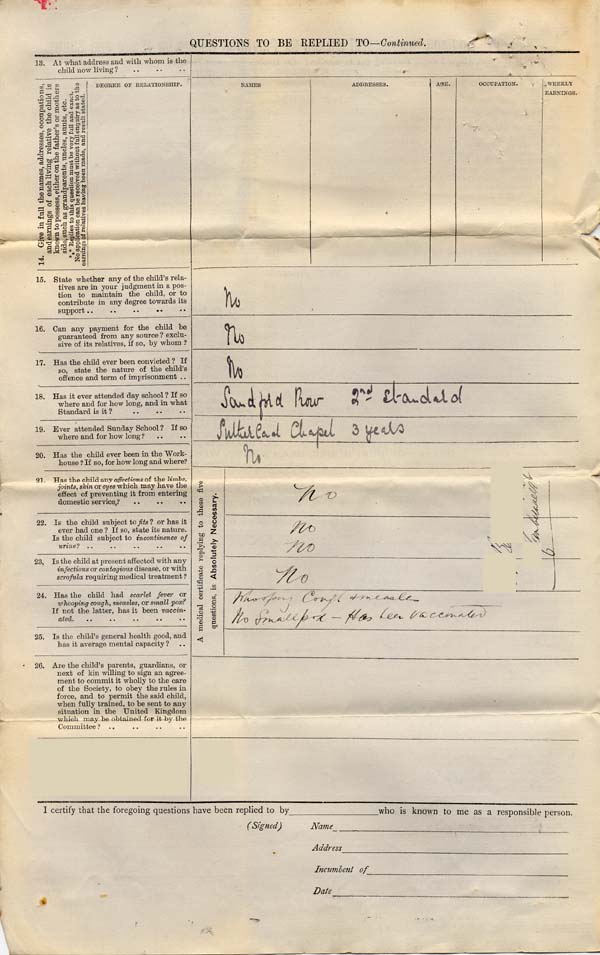 QUESTIONS TO BE REPLIED TO—Continued.
13. At what address and with whom is the
child now living? .. .. ..
14. Give in full the names, addresses, occupations,
and earnings of each living relative the child is
known to possess, either on the father's or mothers
side, such as grandparents, uncles, aunts, etc.
*** Replies to this question must be very full and exact.
No application can be received without full enquiry as to the
earnings of relatives having been made, and result stated.
DEGREE OF RELATIONSHIP.
NAMES
ADDRESSES.
AGE.
OCCUPATION.
WEEKLY
EARNINGS.
15. State whether any of the child's rela-
tives are in your judgment in a pos-
tion to maintain the child, or to
contribute in any degree towards its
support .. .. .. .. ..
No
16. Can any payment for the child be
guaranteed from any source? exclu-
sive of its relatives, if so, by whom?
No
17. Has the child ever been convicted? If
so, state the nature of the child's
offence and term of imprisonment ..
No
18. Has it ever attended day school? If so
where and for how long, and in what
Standard is it? .. .. ..
Sandford Row 2nd Standard
19. Ever attended Sunday School? If so
where and for how long? .. ..
Chapel 3 years
20. Has the child ever been in the Work-
house? If so, for how long and where?
No
A medical certificate replying to these five
questions, is Absolutely Necessary.
21. Has the child any affections of the limbs,
joints, skin or eyes which may have the
effect of preventing it from entering
domestic service? .. .. ..
No
22. Is the child subject to fits? or has it
ever had one? If so, state its nature.
Is the child subject to incontinence of
urine? .. .. .. .. ..
No
No
23. Is the child at present affected with any
infectious or contagious disease, or with
scrofula requiring medical treatment?
No
24. Has the child had scarlet fever or
whooping cough, measles, or small pox?
If not the latter, has it been vaccin-
ated. .. .. .. .. ..
Whooping Cough & measles
No Smallpox — Has been vaccinated
25. Is the child's general health good, and
has it average mental capacity? ..
26. Are the child's parents, guardians, or
next of kin willing to sign an agree-
ment to commit it wholly to the care
of the Society, to obey the rules in
force, and to permit the said child,
when fully trained, to be sent to any
situation in the United Kingdom
which may be obtained for it by the
Committee? .. .. .. ..
I certify that the foregoing questions have been replied to by who is known to me as a responsible person.
(Signed) Name
Address
Incumbent of
Date